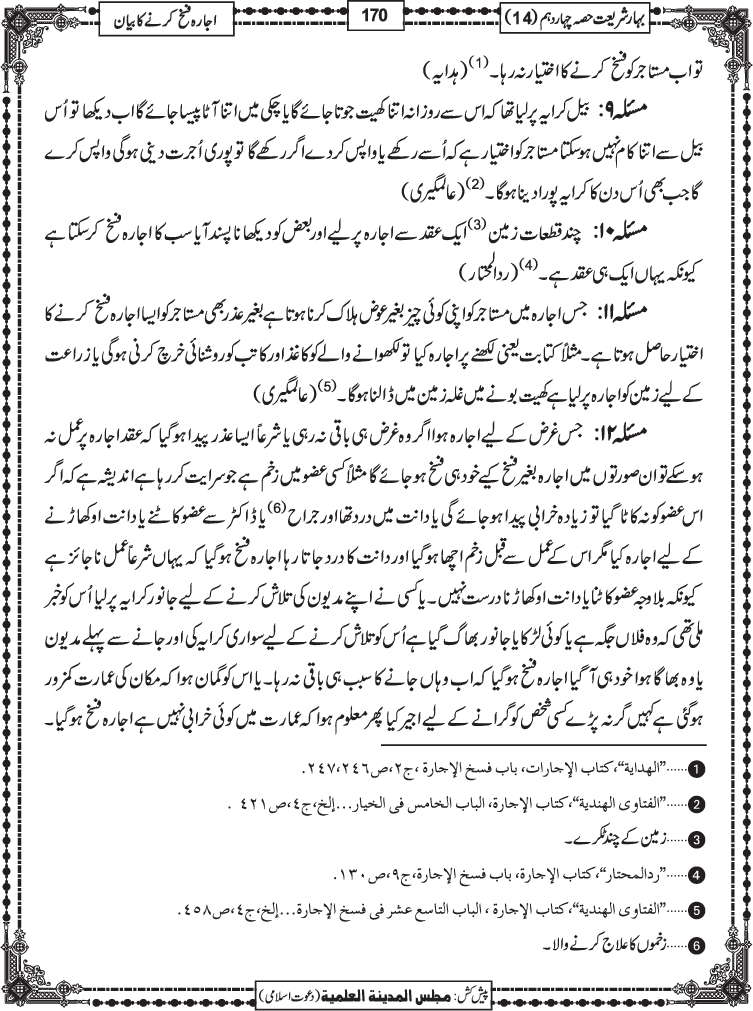 بہارِ شریعت حصہ چہاردہم (14)
170
اجارہ فسخ کرنے کا بیان
تو اب مستاجر کو فسخ کرنے کا اختیار نہ رہا۔(1) (ہدایہ)
مسئلہ ۹: بیل کرایہ پر لیا تھا کہ اس سے روزانہ اتنا کھیت جوتا جائے گا یا چکی میں اتنا آٹا پیسا جائے گا اب دیکھا تو اُس
بیل سے اتنا کام نہیں ہوسکتا مستاجر کو اختیار ہے کہ اُسے رکھے یا واپس کردے اگر رکھے گا تو پوری اُجرت دینی ہوگی واپس کرے
گا جب بھی اُس دن کا کرایہ پورا دینا ہوگا۔(2) (عالمگیری)
مسئلہ ۱۰: چند قطعات زمین(3) ایک عقد سے اجارہ پر لیے اور بعض کو دیکھا ناپسند آیا سب کا اجارہ فسخ کرسکتا ہے
کیونکہ یہاں ایک ہی عقد ہے۔(4) (ردالمحتار)
مسئلہ ۱۱: جس اجارہ میں مستاجر کو اپنی کوئی چیز بغیر عوض ہلاک کرنا ہوتا ہے بغیر عذر بھی مستاجر کو ایسا اجارہ فسخ کرنے کا
اختیار حاصل ہوتا ہے۔ مثلاً کتابت یعنی لکھنے پر اجارہ کیا تو لکھوانے والے کو کاغذ اور کاتب کو روشنائی خرچ کرنی ہوگی یا زراعت
کے لیے زمین کو اجارہ پر لیا ہے کھیت بونے میں غلہ زمین میں ڈالنا ہوگا۔(5) (عالمگیری)
مسئلہ ۱۲: جس غرض کے لیے اجارہ ہوا اگر وہ غرض ہی باقی نہ رہی یا شرعاً ایسا عذر پیدا ہوگیا کہ عقد اجارہ پر عمل نہ
ہوسکے تو ان صورتوں میں اجارہ بغیر فسخ کیے خود ہی فسخ ہوجائے گا مثلاً کسی عضو میں زخم ہے جو سرایت کر رہا ہے اندیشہ ہے کہ اگر
اس عضو کو نہ کاٹا گیا تو زیادہ خرابی پیدا ہوجائے گی یا دانت میں درد تھا اور جراح(6) یا ڈاکٹر سے عضو کاٹنے یا دانت اوکھاڑنے
کے لیے اجارہ کیا مگر اس کے عمل سے قبل زخم اچھا ہوگیا اور دانت کا درد جاتا رہا اجارہ فسخ ہوگیا کہ یہاں شرعاً عمل ناجائز ہے
کیونکہ بلاوجہ عضو کاٹنا یا دانت اوکھاڑنا درست نہیں۔ یا کسی نے اپنے مدیون کی تلاش کرنے کے لیے جانور کرایہ پر لیا اُس کو خبر
ملی تھی کہ وہ فلاں جگہ ہے یا کوئی لڑکا یا جانور بھاگ گیا ہے اُس کو تلاش کرنے کے لیے سواری کرایہ کی اور جانے سے پہلے مدیون
یا وہ بھاگا ہوا خود ہی آگیا اجارہ فسخ ہوگیا کہ اب وہاں جانے کا سبب ہی باقی نہ رہا۔ یا اس کو گمان ہوا کہ مکان کی عمارت کمزور
ہوگئی ہے کہیں گر نہ پڑے کسی شخص کو گرانے کے لیے اجیر کیا پھر معلوم ہوا کہ عمارت میں کوئی خرابی نہیں ہے اجارہ فسخ ہوگیا۔
1 ......"الهداية"، كتاب الإجارات، باب فسخ الإجارة، ج٢، ص٢٤٧،٢٤٦.
2 ......"الفتاوى الهندية"، كتاب الإجارة، الباب الخامس فى الخيار...إلخ، ج٤، ص٤٢١ .
3 ......زمین کے چند ٹکڑے۔
4 ......"ردالمحتار"، كتاب الإجارة، باب فسخ الإجارة، ج٩، ص١٣٠.
5 ......"الفتاوى الهندية"، كتاب الإجارة ، الباب التاسع عشر فى فسخ الإجارة...إلخ، ج٤، ص٤٥٨.
6 ......زخموں کا علاج کرنے والا۔
پیش کش: مجلس المدينة العلمية (دعوت اسلامی)